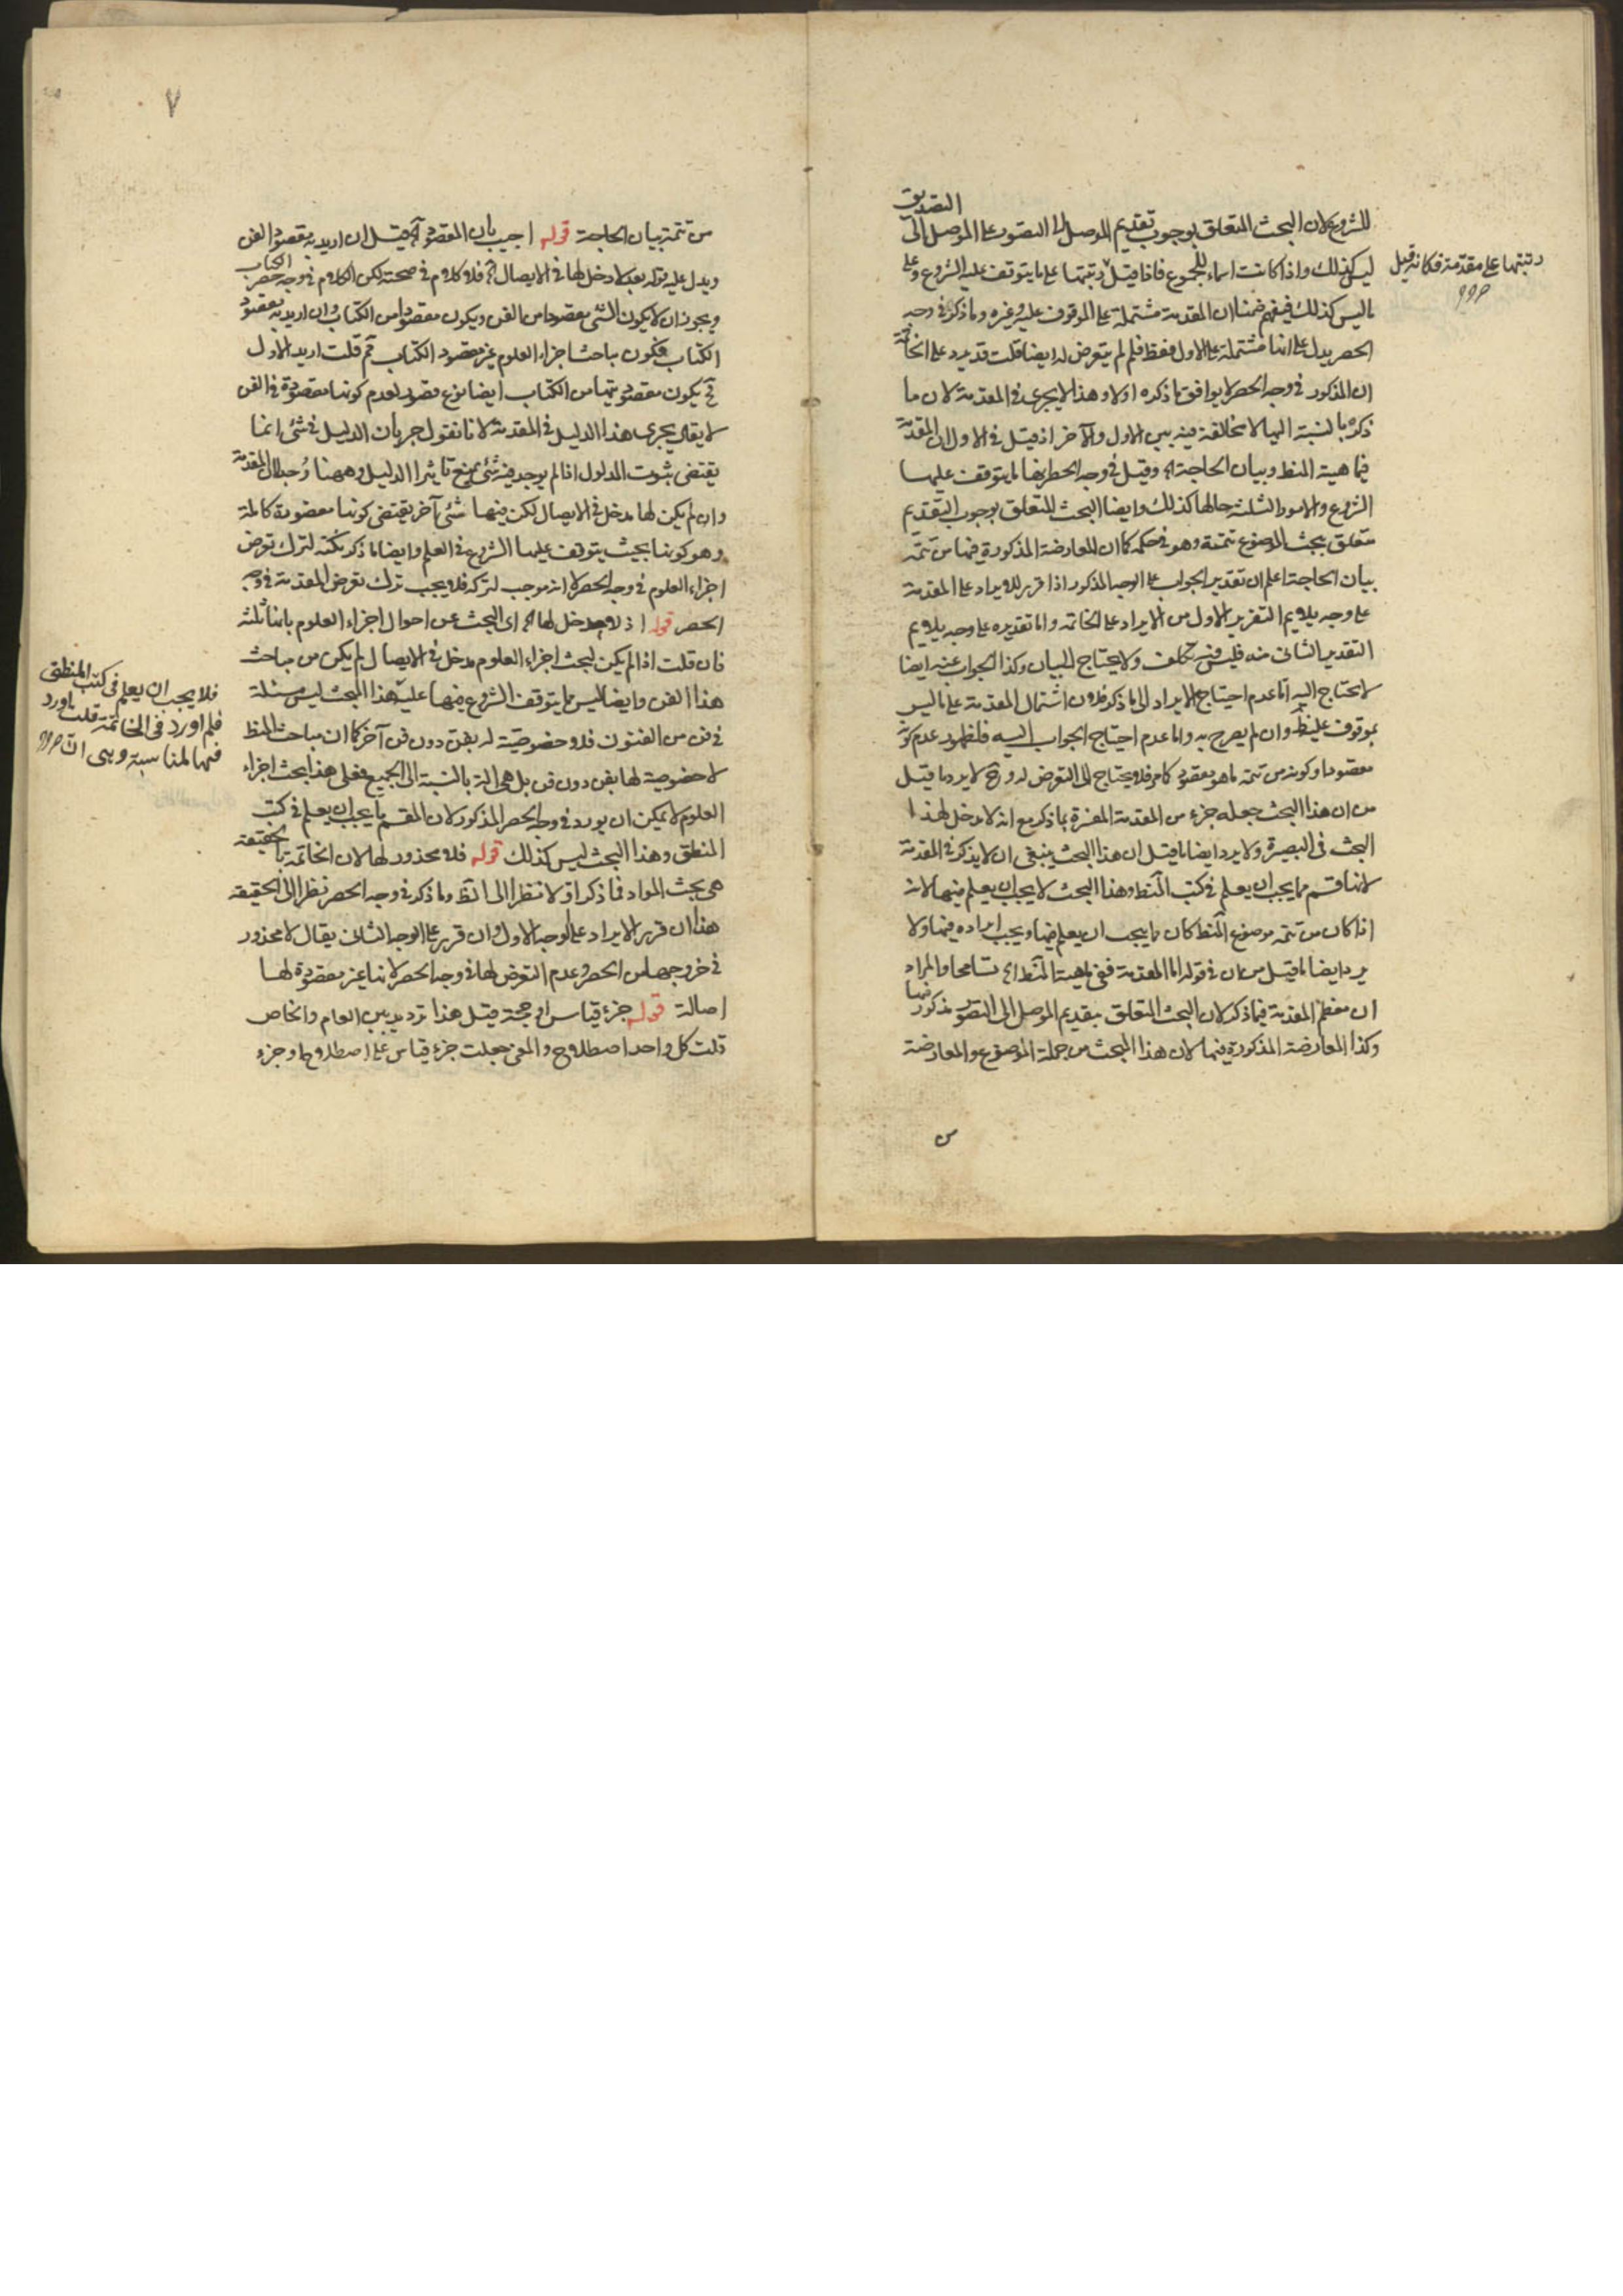 للشروع لان البحث المتعلق بوجوب تقديم الموصل الى التصور على الموصل الى التصديق
ليس كذلك واذا كانت اسماء للمجموع فاذا قيل رتبتها على ما يتوقف عليه الشروع وعلى
رتبتها على مقدمة فكانه قيل
ما ليس كذلك فيفهم ضمنا ان المقدمة مشتملة على الموقوف عليه وغيره وما ذكر في وجه
الحصر يدل على انها مشتملة على الاول فقط فلم لم يتعرض له ايضا قلت قد يرد على الخاتمة
ان المذكور في وجه الحصر لا يوافق ما ذكره اولا وهذا لا يجرى في المقدمة لان ما
ذكره بالنسبة اليها لا مخالفة فيه بين الاول والآخر اذ قيل في الاول ان المقدمة
فيما هية المنط وبيان الحاجة اه وقيل في وجه الحصر انها ما يتوقف عليها
الشروع والامور الثلثة حالها كذلك وايضا البحث المتعلق بوجوب التقديم
متعلق ببحث الموضوع تتمة وهو في حكمه كما ان المعارضة المذكورة فيها من تتمة
بيان الحاجة اعلم ان تقدير الجواب على الوجه المذكور اذا قرر للايراد على المقدمة
على وجه يلايم التقرير الاول من الايراد على الخاتمة واما تقديره على وجه يلايم
التقدير الثانى منه ولا يحتاج الى البيان وكذا الجواب عنه ايضا
لا يحتاج اليه اما عدم احتياج الايراد الى ما ذكر فلان اشتمال المقدمة على ما ليس
بموقوف عليه وان لم يصرح به واما عدم احتياج الجواب اليه فلظهور عدم كونه
مقصودا وكونه من تتمة ما هو مقصود كما مر فلا يحتاج الى التعرض له وح لا يرد ما قيل
من ان هذا البحث جعله جزء من المقدمة المفسرة بما ذكر مع انه لا دخل لهذا
البحث فى البصيرة ولا يرد ايضا ما قيل ان هذا البحث ينبغى ان لا يذكر في المقدمة
لانها قسم مما يجب ان يعلم في كتب المنط وهذا البحث لا يجب ان يعلم فيها لانه
اذا كان من تتمة موضوع المنط كان مما يجب ان يعلم فيها ويجب ايراده فيها ولا
يرد ايضا ما قيل من ان في قوله اما المقدمة ففى ماهية المنط اه تسامحا والمراد
ان معظم المقدمة فيما ذكر لان البحث المتعلق بتقديم الموصل الى التصور مذكور فيها
وكذا المعارضة المذكورة فيها لان هذا البحث من جملة الموضوع والمعارضة
من
٧
من تتمة بيان الحاجة قوله اجيب بان المقصود اه قيل ان اريد به مقصود الفن
ويدل عليه قوله بعد لا دخل لها في الايصال اه فلا كلام في صحته لكن الكلام في وجه حصر الكتاب
ويجوز ان لا يكون الشئ مقصودا من الفن ويكون مقصودا من الكتاب وان اريد به مقصود
الكتاب فكون مباحث اجزاء العلوم غير مقصود الكتاب ثم قلت اريد الاول
ح يكون مقصوديتها من الكتاب ايضا نوع قصور لعدم كونها مقصودة في الفن
لا يقال يجرى هذا الدليل في المقدمة لانا نقول جريان الدليل في شئ انما
يقتضى ثبوت المدلول اذا لم يوجد فيه شئ يمنع تاثير الدليل وههنا وجد لان المقدمة
وان لم يكن لها مدخل في الايصال لكن فيها شئ آخر يقتضى كونها مقصودة كاملة
وهو كونها بحيث يتوقف عليها الشروع في العلم وايضا ما ذكر نكتة لترك تعرض
اجزاء العلوم في وجه الحصر لا انه موجب لتركه فلا يجب ترك تعرض المقدمة في وجه
الحصر قوله اذ لا مدخل لها اه اى البحث عن احوال اجزاء العلوم بانها ثلثة
فان قلت اذا لم يكن لبحث اجزاء العلوم مدخل في الايصال لم يكن من مباحث
هذا الفن وايضا ليس مما يتوقف الشروع فيها عليه هذا البحث ليس مسئلة
فى فن من الفنون فلا خصوصية له بفن دون فن آخر كما ان مباحث المنط
لا خصوصية لها بفن دون فن بل هى الة بالنسبة الى الجميع فعلى هذا بحث اجزاء
فلا يجب ان يعلم فى كتب المنطقى
فلم اورد فى الخاتمة قلت اورد
فيها لمناسبة وهى ان
العلوم لا يمكن ان يورد في وجه الحصر المذكور لان المقسم ما يجب ان يعلم في كتب
المنطق وهذا البحث ليس كذلك قوله فلا محذور لها لان الخاتمة بالحقيقة
هى بحث المواد فما ذكر اولا نظرا الى الظ وما ذكر في وجه الحصر نظرا الى الحقيقة
هذا ان قرر الايراد على الوجه الاول وان قرر على الوجه الثانى يقال لا محذور
في خروجها من الحصر وعدم التعرض لها في وجه الحصر لانها غير مقصودة لها
اصالة قوله جزء قياس او حجة قيل هذا ترديد بين العام والخاص
قلت كل واحد اصطلاح والمعنى جعلت جزء قياس على اصطلاح وجزء